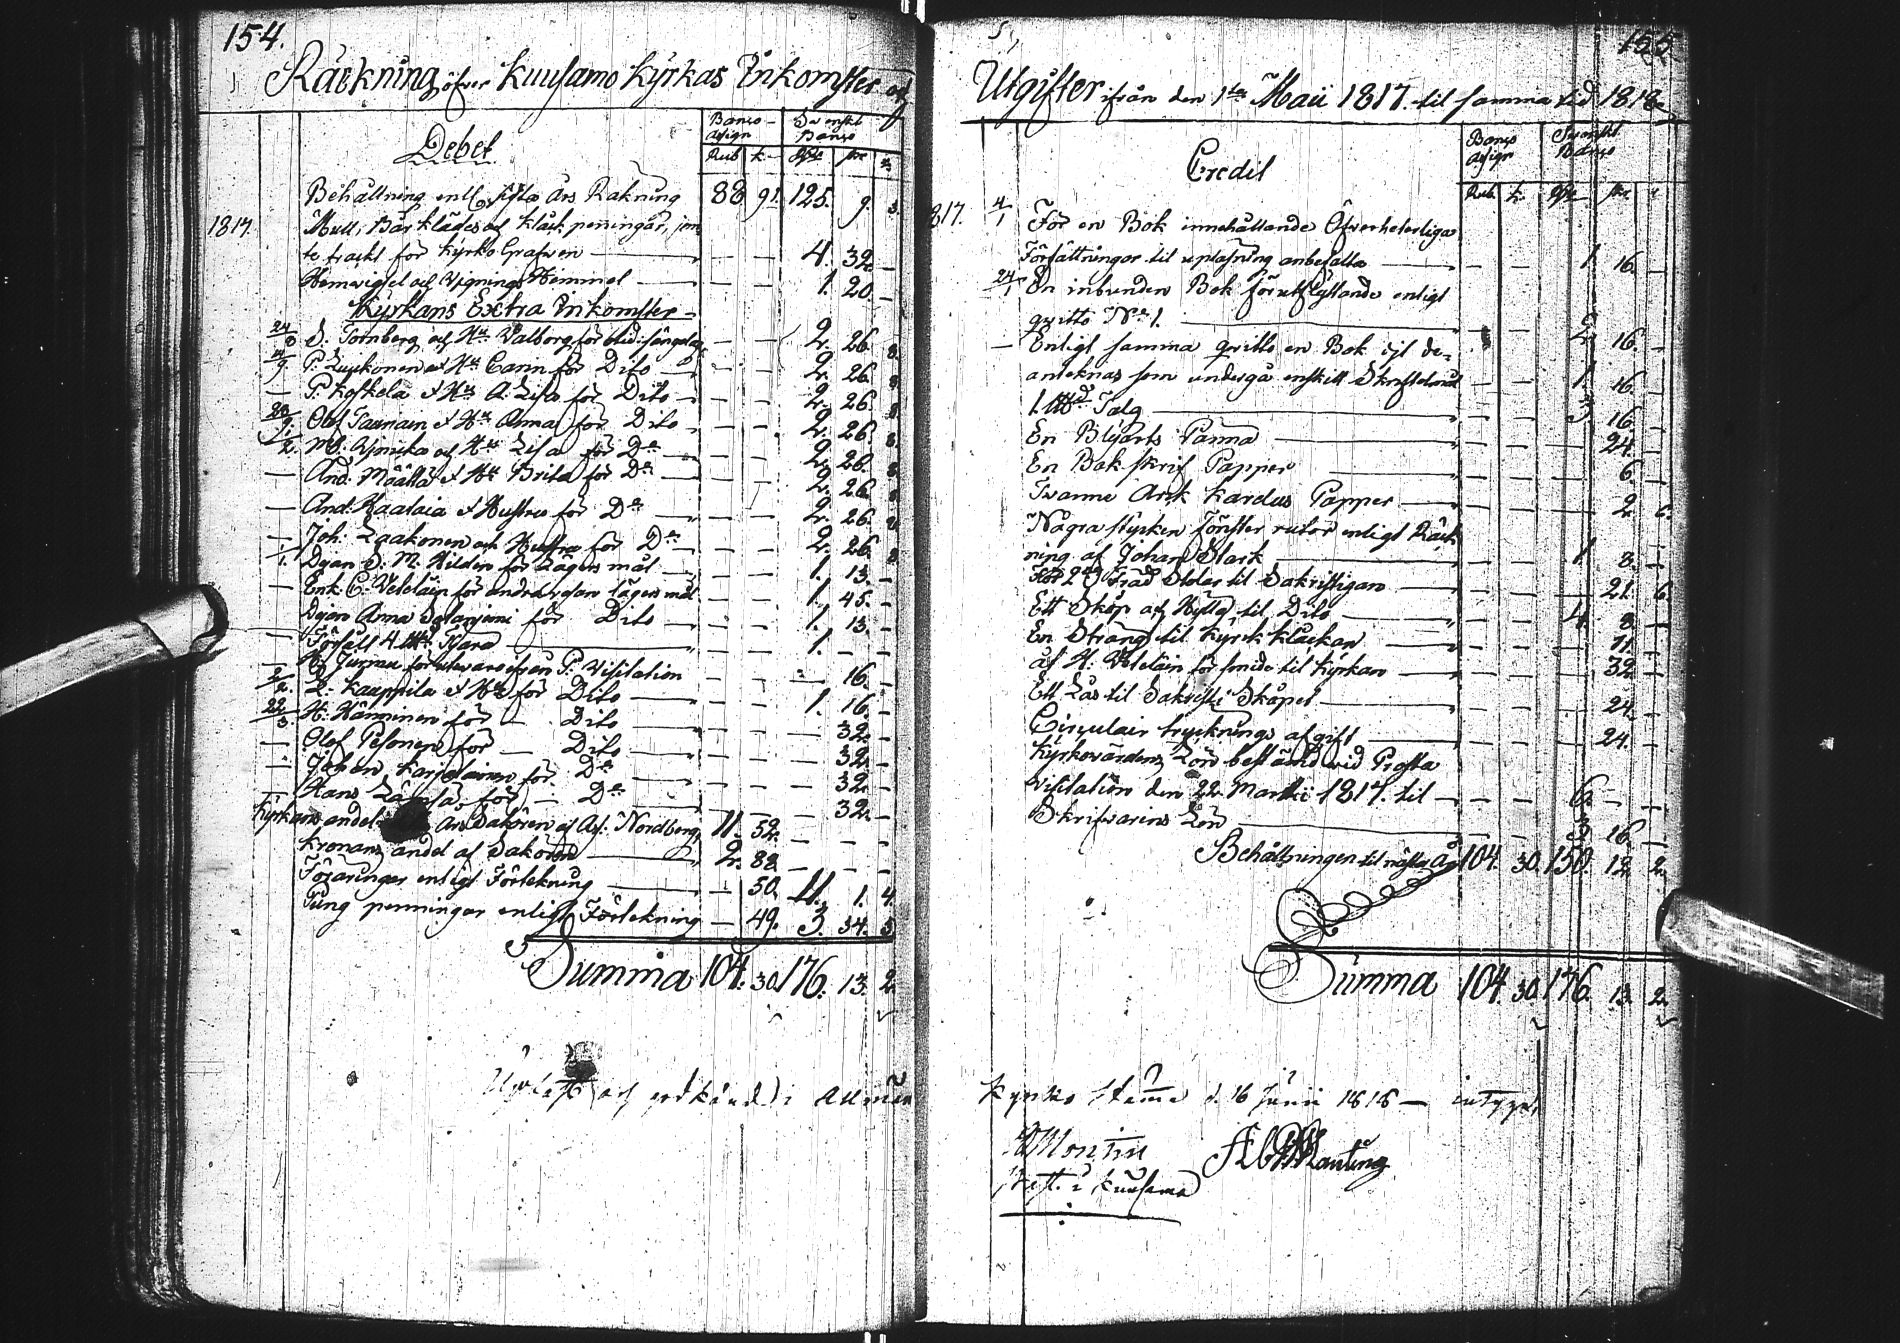 154.
Räckning öfver Kuusamo Kyrkas Inkomster och
Debet
Banco Assign Svenskt Banco
Rub k Rd sk r
Behållning enl. sista års Räkning 88 91. 125. 9. 3.
1817. Mull, Bår klädes och Klåck penningar, jem
te frackt för Kyrko Grafven — — 4. 32. —
Hemvigsel och Vignings Himmel — — 1. 20. —
Kyrkans Extra Inkomster
S. Tornberg och Hu Valborg för otid: sängelag — — 2. 26. 8.
P. Luukonen och Hu Carin för Dito — — 2. 26. 8
— P. Koskela & Hu A. Lisa för Dito — — 2. 26. 8
Olof Taurian & Hu Anna för Dito — — 2. 26. 8
och Hu Lisa för Do — — 2. 26. 8
— And. Määttä & Hu Brita för Do — — 2. 26. 8
— And. Kaalaia & Hustru för Do — — 2. 26. 8
— Joh. Laakonen och Hustru för Do — — 2. 26. 8
Pigan S. M. Hilden för Lägers mål — — 1. 13. —
— Enk. C. Veteläin för andra resan lägers mål — — 1. 45. —
Pigan Anna för Dito — — 1. 13. —
— Försålt 4 — — 1. — —
från P. Visitation — — — 16. —
L. Kauppila & Hu för Dito — — 1. 16. —
22/3 H. Hänninen för — Dito — — — 32. —
— Olof Pesonen för — Dito — — — 32. —
— Johan Karjalainen för Do — — — 32. —
— Hans för — Do — — — 32. —
Kyrkans andel af Sakören af Ass. Nordberg 11. 52. — — —
Kronans andel af Sakören 2. 88. — — —
Föräringar enligt Förtekning — 50. 11. 1. 4.
Pung penningar enligt Förtekning — 49. 3. 34. 3
Summa 104. 30. 176. 13. 2.
Upläst och godkänd i Allmän
155.
Utgifter ifrån den 1sta Maii 1817. til samma tid 1818.
Credit
Banco Assign Svenskt Banco
Rub. k. Rd sk. r
1817. 4/1 För en Bok innehållande Öfverheterliga
Författningar til uplåsning anbefalte — — 1. 16. —
24/1 En inbunden Bok för utflyttande enligt
qvitto No 1. — — 2. 16. —
— Enligt samma qvitto en Bok det de
anteknas som undergå enskilt Skriftemål — — 1. 16. —
1. Talg — — 3. 16. —
En Blyerts Panna — — — 24. —
En Bok skrif Papper — — — 6. —
Tvanne Ark Kardus Papper — — — 2. 6.
Några stycken fönster rutor enligt Räck
ning af Johan Stark — — 1. 8. —
För 2 Träd Stolar til Sakristigan — — — 21. 6.
Ett Skåp af til Dito — — 4. 8. —
En Sträng til Kyrck klåckan — — — 11. —
af H. Veteläin för smide til Kyrkan — — — 32. —
Ett Lås til Sakristi Skåpet — — — 24. —
Circulair trycknings afgift — — — 24. —
Kyrkovärdens Lön bestämd vid Prosta
Visitation den 22. Martii 1817. til — — 6. — —
Skrifvarens Lön — — 3. 16. —
Behållningen til nästa År 104. 30. 150. 12. 2.
Summa 104. 30. 176. 13. 2.
Kyrko Stämma d. 16 Junii 1818 — intygar
Montin
Past. i Kuusamo